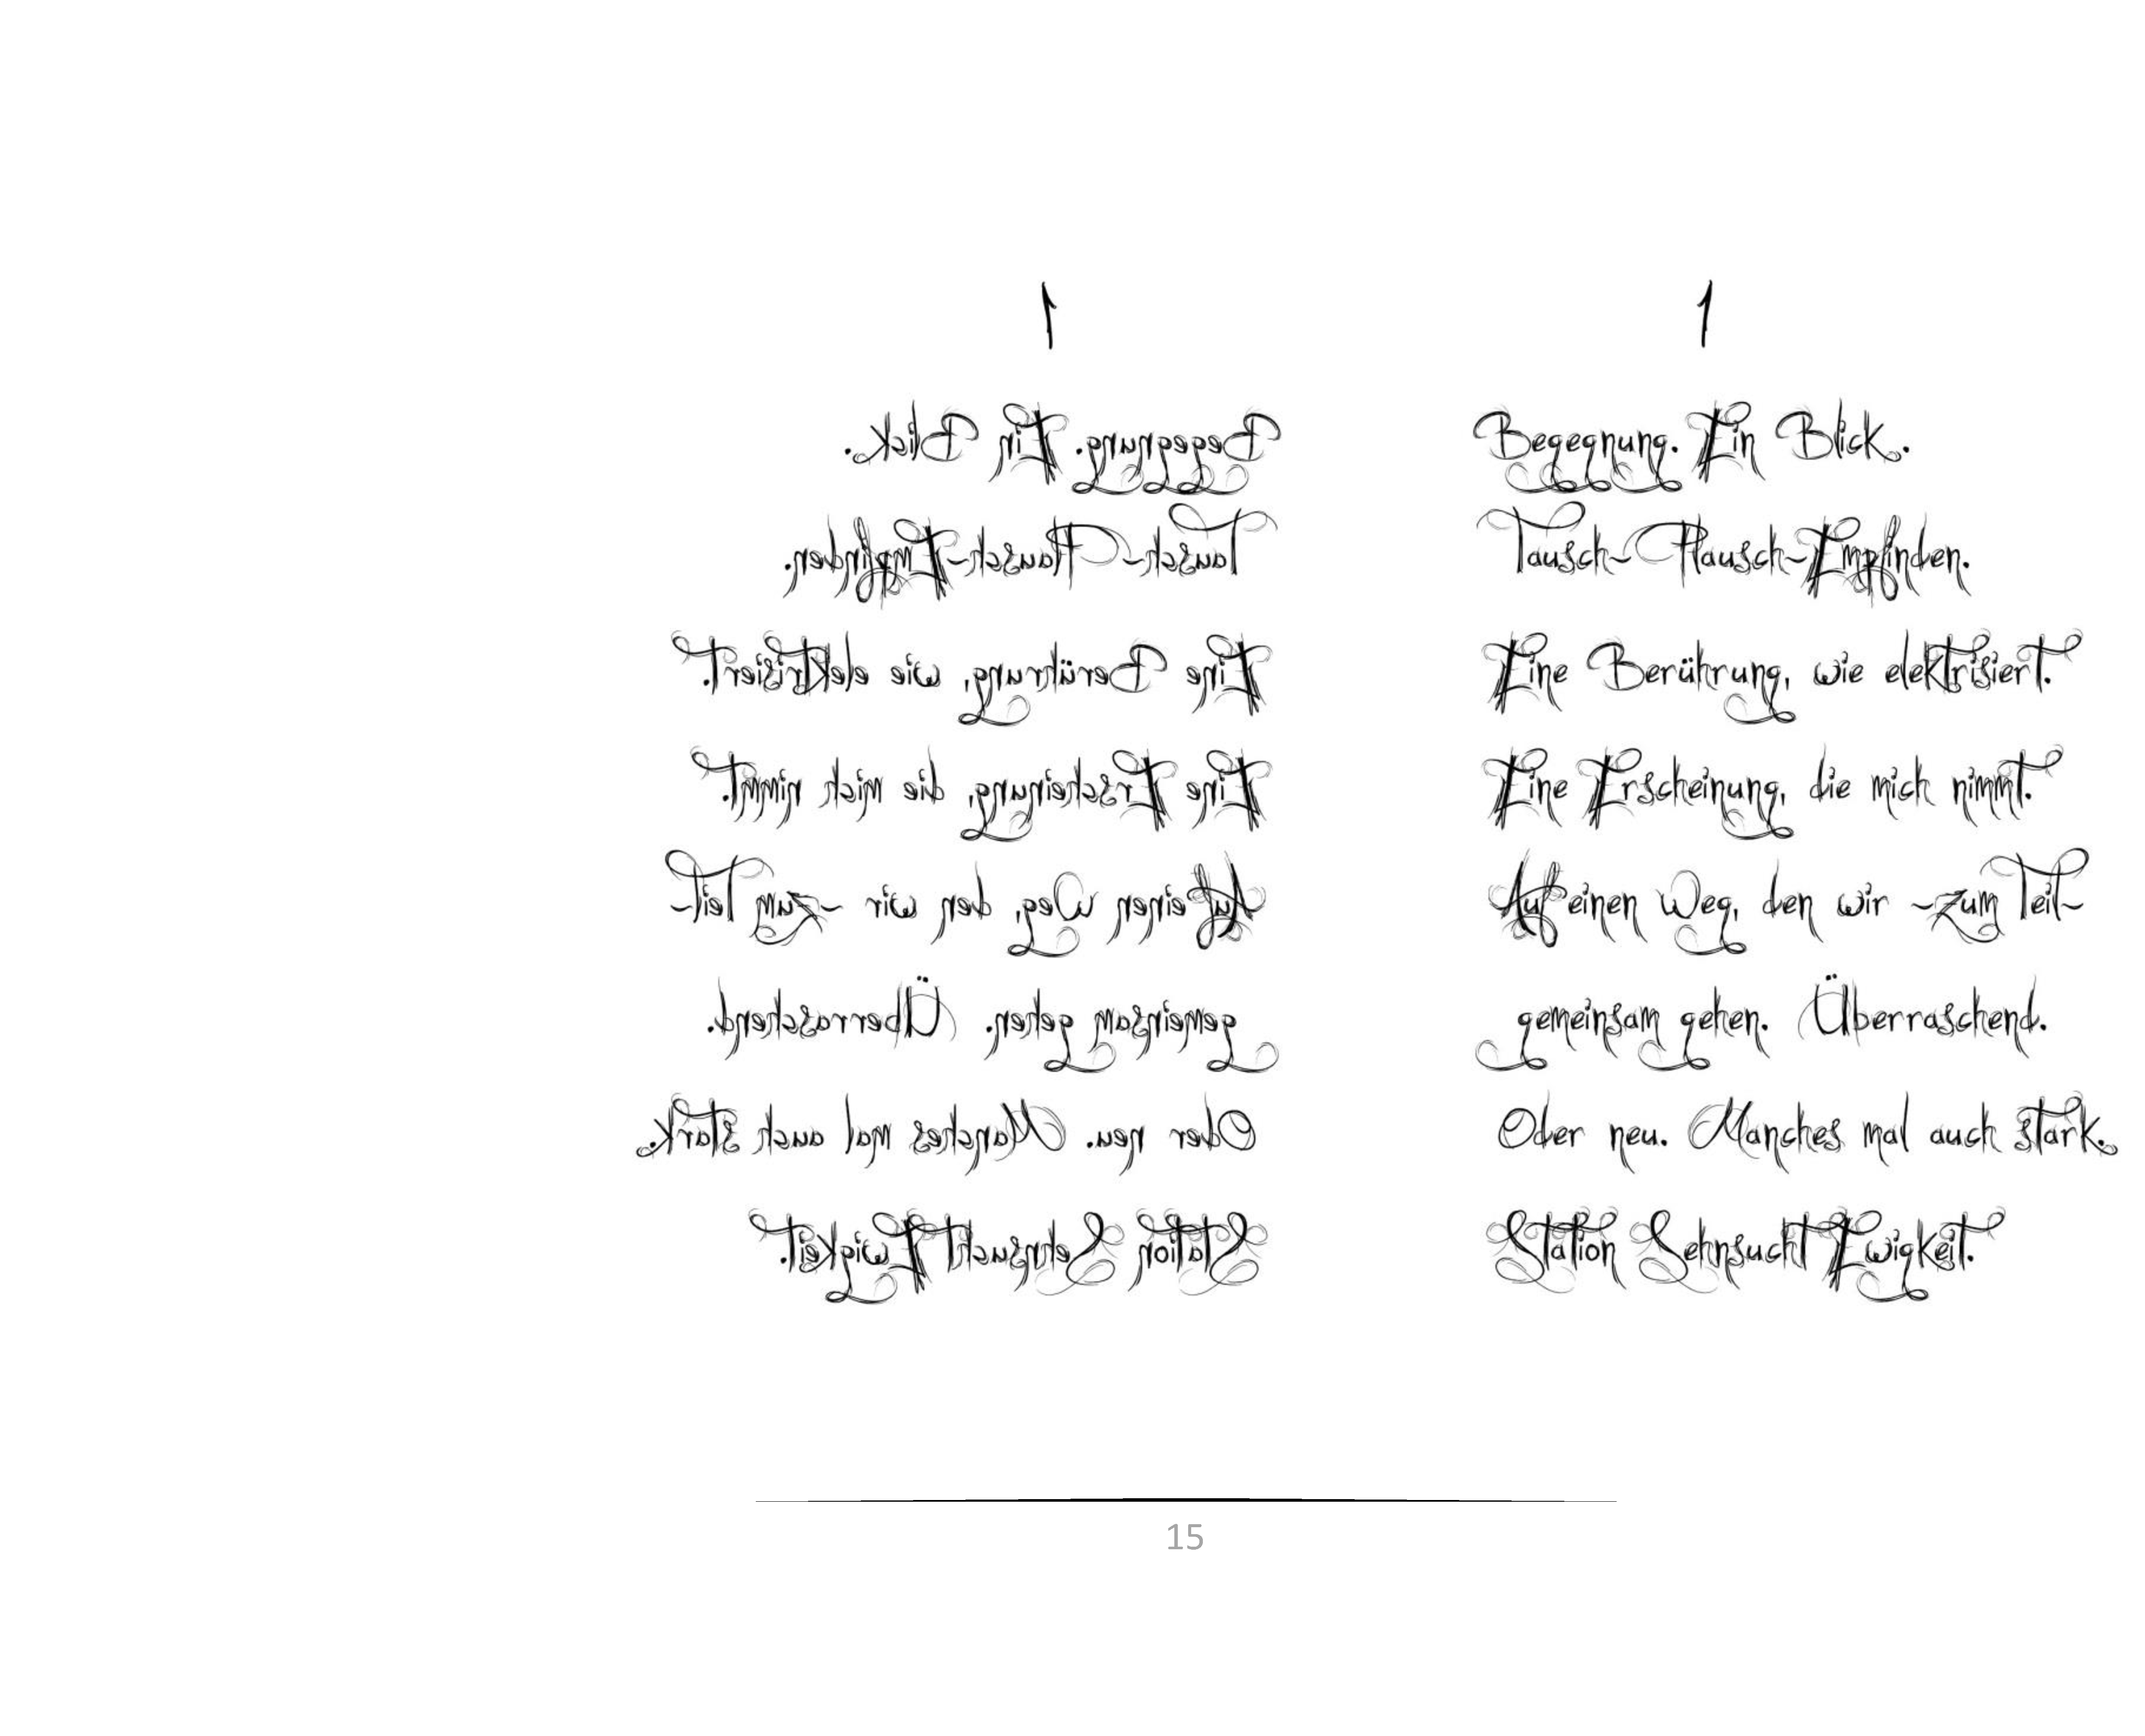 1
Begegnung. Ein Blick.
Tausch-Plausch-Empfinden.
Eine Berührung, wie elektrisiert.
Eine Erscheinung, die mich nimmt.
Auf einen Weg, den wir -zum Teil-
gemeinsam gehen. Überraschend.
Oder neu. Manches mal auch stark.
Station Sehnsucht Ewigkeit.
1
Begegnung. Ein Blick.
Tausch-Plausch-Empfinden.
Eine Berührung, wie elektrisiert.
Eine Erscheinung, die mich nimmt.
Auf einen Weg, den wir -zum Teil-
gemeinsam gehen. Überraschend.
Oder neu. Manches mal auch stark.
Station Sehnsucht Ewigkeit.
15